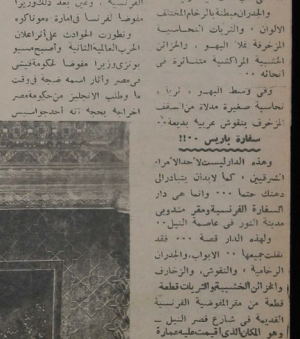 والجدران مبطنة بالرخام المختلف
الالوان ، والثريات النحاسية
المزخرفة تملأ البهو ، والخزائن
الخشبية المراكشية متناثرة فى
أنحائه ٠٠
وفى وسط البهو ، ثريا ،
نحاسية صغيرة مدلاة من السقف
المزخرف بنقوش عربية بديعة ٠
سفارة باريس ٠٠!!
وهذه الدار ليست لاحد الامراء
الشرقيين ، كما لابد أن يتبادر الى
ذهنك حتما ٠٠٠ وانما هى دار
السفارة الفرنسية ومقر مندوبى
مدينة النور فى عاصمة النيل ٠٠
ولهذه الدار قصة ٠٠٠ فقد
نقلت جميعها ٠٠ الابواب والجدران
الرخامية ، والنقوش ، والزخارف
والخزائن الخشبية والثريات قطعة
قطعة من مقر المفوضية الفرنسية
القديمة فى شارع قصر النيل —
وهو المكان الذى أقيمت عليه عمارة
الفرنسية ، وعين بعد ذلك وزيرا
مفوضا لفرنسا فى امارة موناكو
وتطورت الحوادث على أثر اعلان
الحرب العالمية الثانية وأصبح مسيو
بونزى وزيرا مفوضا لحكومة فيشى
فى مصر وأثار اسمه ضجة فى وقت
ما وطلب الانجليز من حكومة مصر
اخراجه بحجة أنه أحد جواسيس